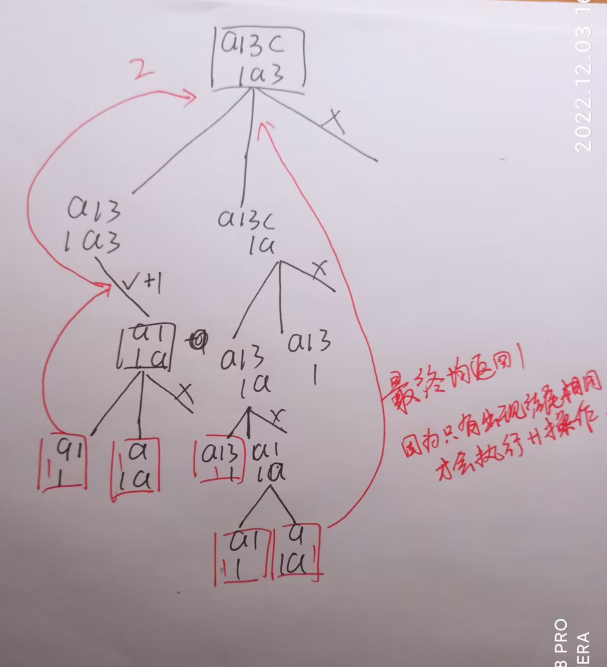 a13c
1a3
2
x
a13
1a3
a13c
1a
✓+1
x
a1
1a
a13
1a
a13
1
x
x
a1
1
a
1a
a13
1
a1
1a
a1
1
a
1a
最终均返回1
因为只有出现结尾相同
才会执行++操作
2022.12.03 1
8 PRO
ERA